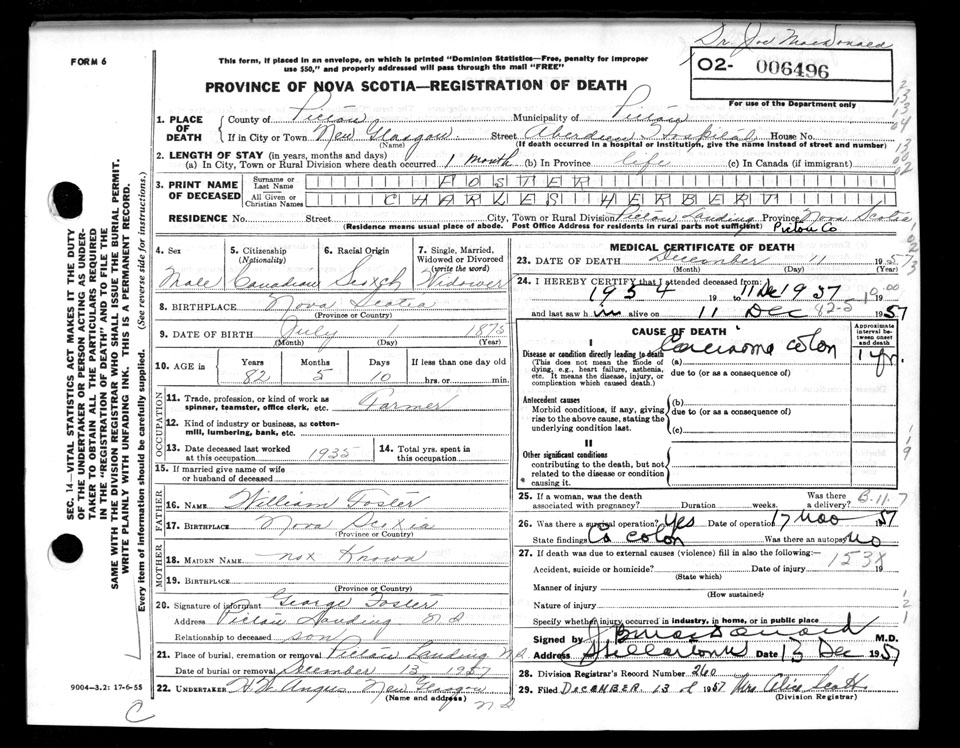 Dr. Joe MacDonald
FORM 6
This form, if placed in an envelope, on which is printed "Dominion Statistics—Free, penalty for improper
use $50," and properly addressed will pass through the mail "FREE"
02- 006496
PROVINCE OF NOVA SCOTIA—REGISTRATION OF DEATH
For use of the Department only
1. PLACE OF DEATH
County of Pictou Municipality of Pictou
If in City or Town New Glasgow Street Aberdeen Hospital House No.
(Name) (If death occurred in a hospital or institution, give the name instead of street and number)
2. LENGTH OF STAY (in years, months and days)
(a) In City, Town or Rural Division where death occurred 1 month (b) In Province life (c) In Canada (if immigrant)
3. PRINT NAME OF DECEASED
Surname or Last Name FOSTER
All Given or Christian Names CHARLES HERBERT
RESIDENCE No. Street City, Town or Rural Division Pictou Landing Province Nova Scotia
(Residence means usual place of abode. Post Office Address for residents in rural parts not sufficient) Pictou Co
4. Sex Male
5. Citizenship (Nationality) Canadian
6. Racial Origin Scotch
7. Single, Married, Widowed or Divorced (write the word) Widower
8. BIRTHPLACE Nova Scotia
(Province or Country)
9. DATE OF BIRTH July 1 1875
(Month) (Day) (Year)
10. AGE in Years Months Days If less than one day old
82 5 10 hrs. or min.
OCCUPATION
11. Trade, profession, or kind of work as spinner, teamster, office clerk, etc. Farmer
12. Kind of industry or business, as cotton-mill, lumbering, bank, etc.
13. Date deceased last worked at this occupation 1935
14. Total yrs. spent in this occupation
15. If married give name of wife or husband of deceased
FATHER
16. NAME William Foster
17. BIRTHPLACE Nova Scotia
(Province or Country)
MOTHER
18. MAIDEN NAME not Known
19. BIRTHPLACE
(Province or Country)
20. Signature of informant George Foster
Address Pictou Landing N S
Relationship to deceased son
21. Place of burial, cremation or removal Pictou Landing N.S.
Date of burial or removal December 13 1957
22. UNDERTAKER H W Angus New Glasgow
(Name and address) N S
MEDICAL CERTIFICATE OF DEATH
23. DATE OF DEATH December 11 1957
(Month) (Day) (Year)
24. I HEREBY CERTIFY that I attended deceased from:
1954 19 to 11 Dec 1957
and last saw him alive on 11 Dec 1957
CAUSE OF DEATH
Approximate interval between onset and death
I
Disease or condition directly leading to death (a) Carcinoma colon 1 yr.
(This does not mean the mode of dying, e.g., heart failure, asthenia, etc. It means the disease, injury, or complication which caused death.)
due to (or as a consequence of)
Antecedent causes
Morbid conditions, if any, giving rise to the above cause, stating the underlying condition last.
(b)
due to (or as a consequence of)
(c)
II
Other significant conditions
contributing to the death, but not related to the disease or condition causing it.
25. If a woman, was the death associated with pregnancy? Duration weeks. Was there a delivery?
26. Was there a surgical operation? Yes Date of operation 17 Nov 1957
State findings Ca colon Was there an autopsy? No
27. If death was due to external causes (violence) fill in also the following:— 153X
Accident, suicide or homicide? Date of injury 19
(State which)
Manner of injury
(How sustained)
Nature of injury
Specify whether injury occurred in industry, in home, or in public place
Signed by J B MacDonald M.D.
Address Stellarton NS Date 13 Dec 1957
28. Division Registrar's Record Number 260
29. Filed DECEMBER 13 1957 Mrs. Alis Scott
(Division Registrar)
SEC. 14—VITAL STATISTICS ACT MAKES IT THE DUTY
OF THE UNDERTAKER OR PERSON ACTING AS UNDER-
TAKER TO OBTAIN ALL THE PARTICULARS REQUIRED
IN THE "REGISTRATION OF DEATH" AND TO FILE THE
SAME WITH THE DIVISION REGISTRAR WHO SHALL ISSUE THE BURIAL PERMIT.
WRITE PLAINLY WITH UNFADING INK. THIS IS A PERMANENT RECORD.
Every item of information should be carefully supplied. (See reverse side for instructions.)
9004—3.2: 17-6-55
C